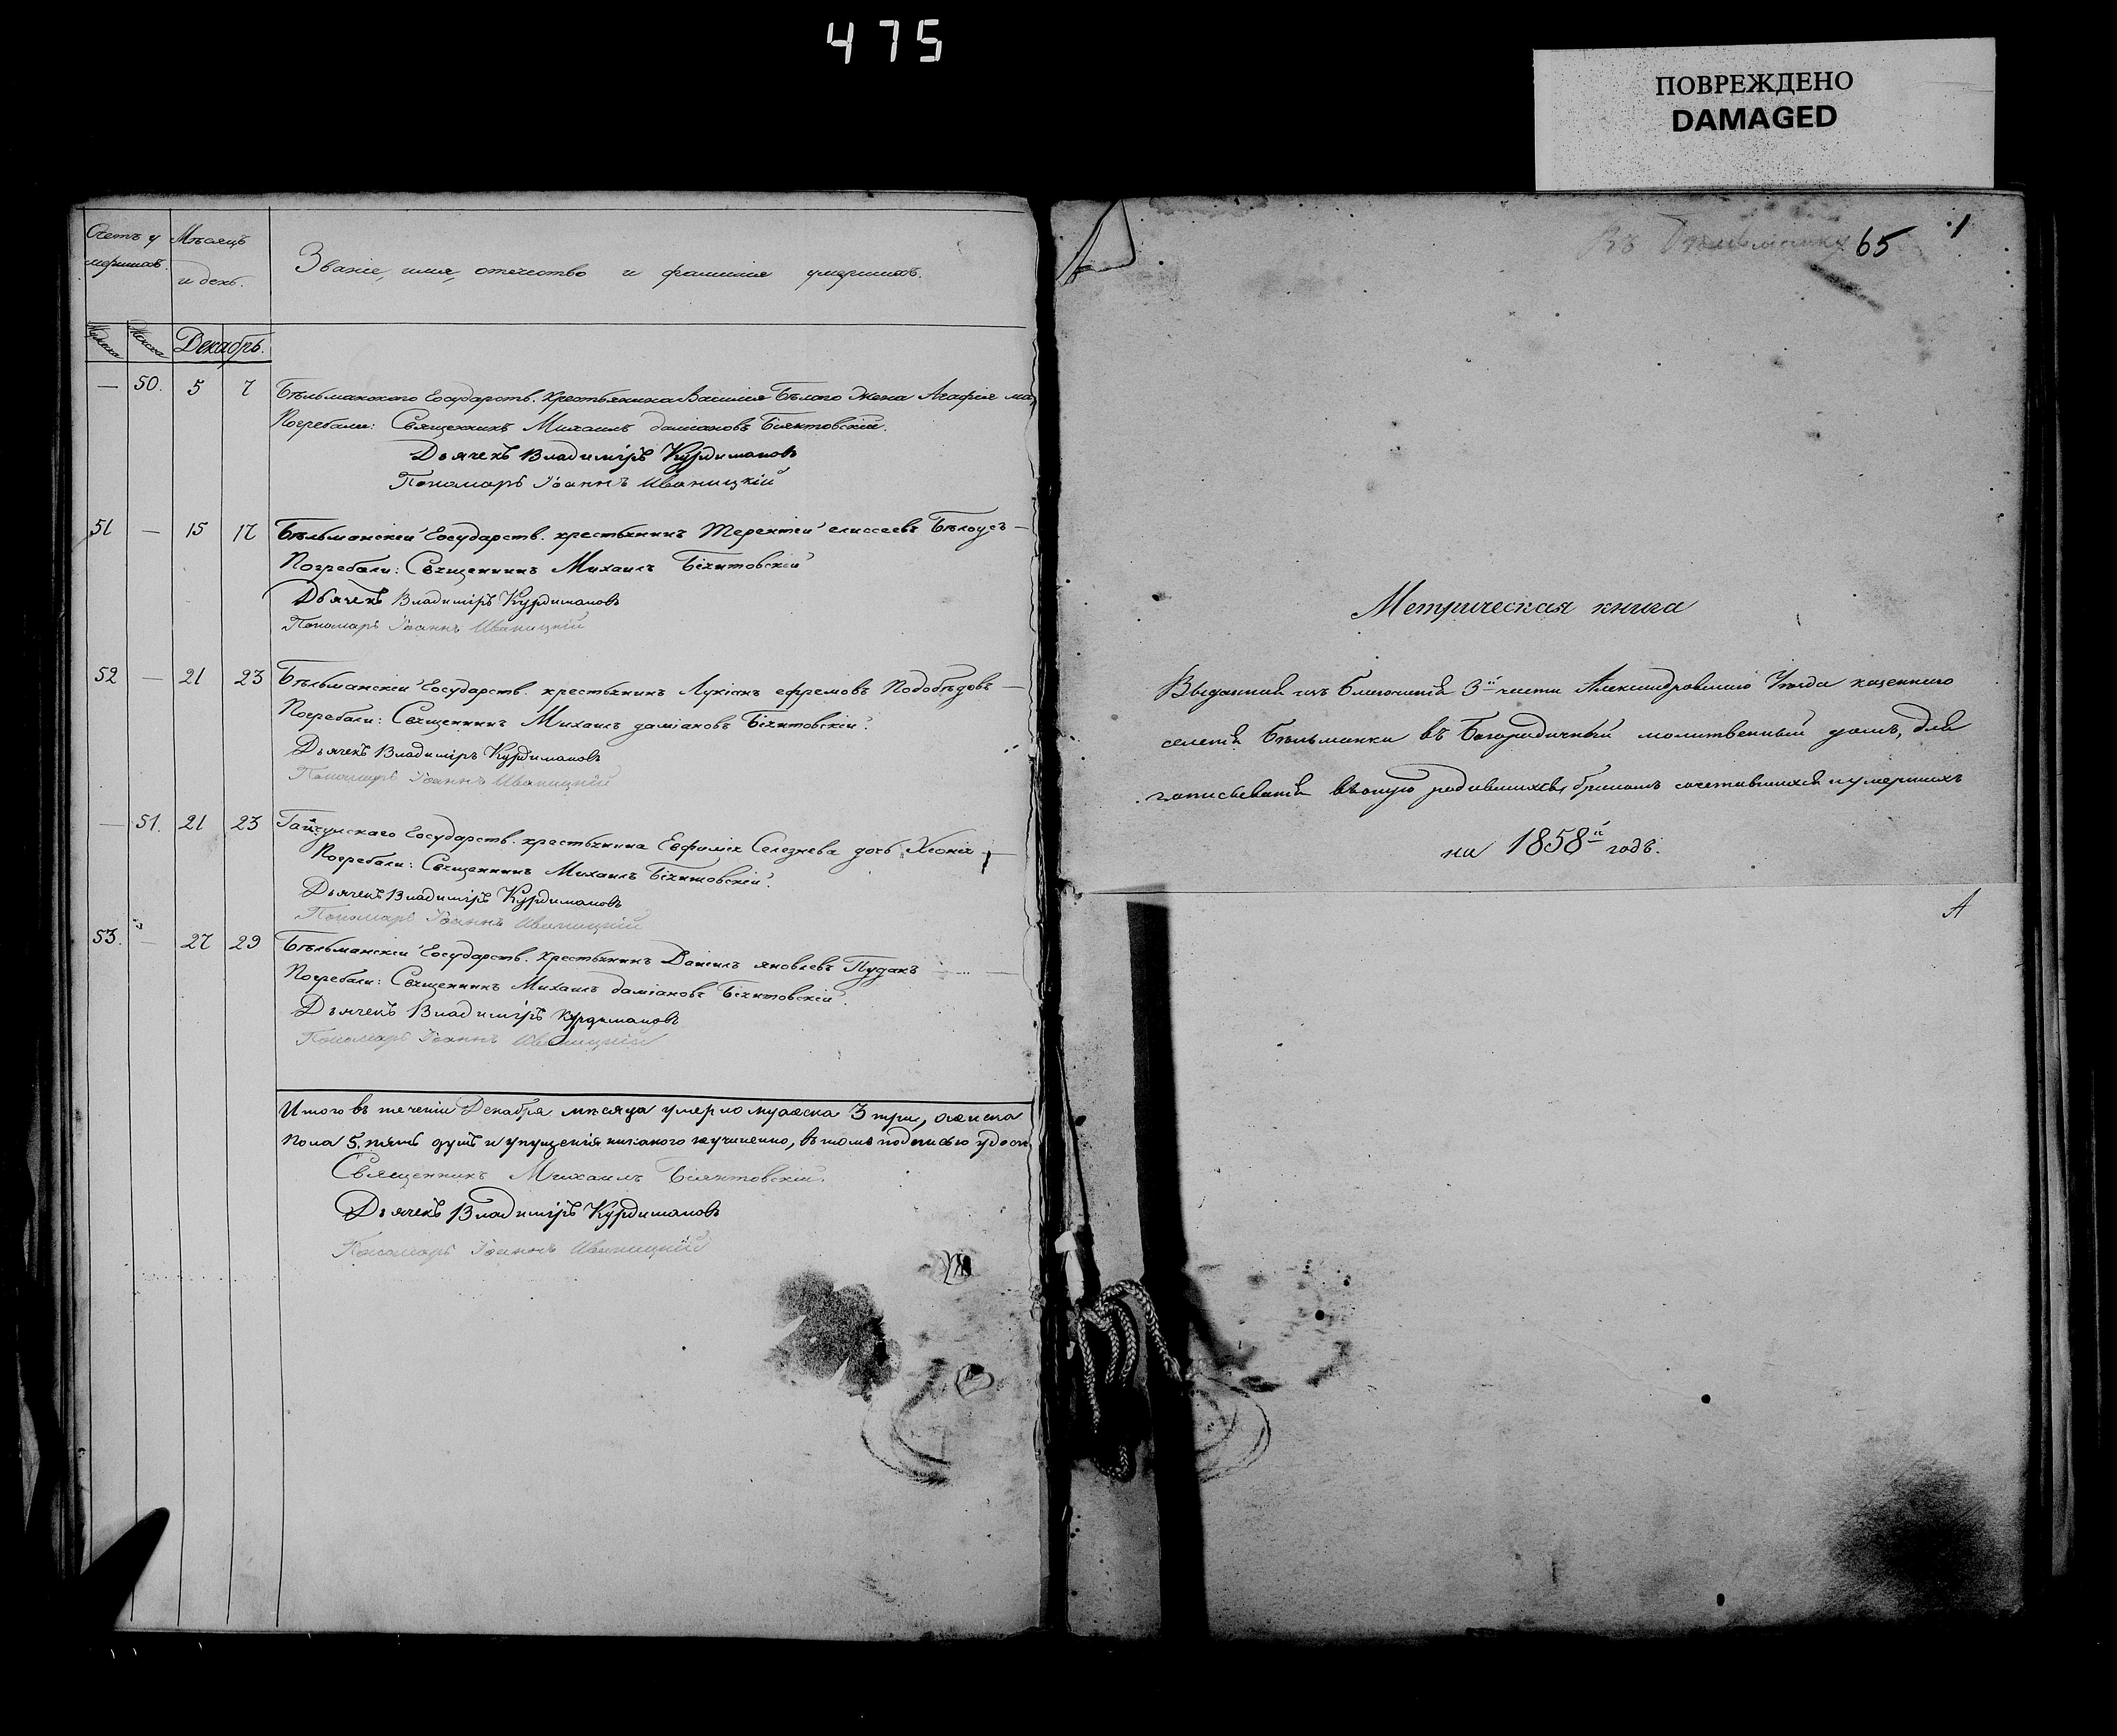 475
ПОВРЕЖДЕНО
DAMAGED
Счетъ у
мершихъ.
Мѣсяцъ
и день.
Званіе, имя, отчество и фамилія умершихъ.
Мужеска
Женска
Декабрь.
— 50. 5 7 Бѣльманскаго Государств. крестьянина Василія Бѣлаго жена Агафія
Погребали: Священникъ Михаилъ даміановъ Бѣлятовскій.
Дьячекъ Владиміръ Курдимановъ
Пономарь Іоаннъ Иваницкій
51 — 15 17 Бѣльманскій Государств. крестьянинъ Терентій елиссеевъ Бѣлоусъ —
Погребали: Священникъ Михаилъ
Дьячекъ Владиміръ Курдимановъ
Пономарь Іоаннъ Иваницкій
52 — 21 23 Бѣльманскій Государств. крестьянинъ Лукіанъ ефремовъ Подобѣдовъ —
Погребали: Священникъ Михаилъ даміановъ
Дьячекъ Владиміръ Курдимановъ
Пономарь Іоаннъ Иваницкій
— 51. 21 23 Гайчулскаго Государств. крестьянина Евфимія Селезнева дочь Хіонія —
Погребали: Священникъ Михаилъ
Дьячекъ Владиміръ Курдимановъ
Пономарь Іоаннъ Иваницкій
53. — 27 29 Бѣльманскій Государств. крестьянинъ Даніилъ яковлевъ Пудакъ —
Погребали: Священникъ Михаилъ даміановъ
Дьячекъ Владиміръ Курдимановъ
Пономарь Іоаннъ Иваницкій
Итого въ теченіи Декабря мѣсяца умерло мужеска 3 три, женска
пола 5. пять душъ и упущенія никакого неучинено, въ томъ подписью удост
Священникъ Михаилъ
Дьячекъ Владиміръ Курдимановъ
Пономарь Іоаннъ Иваницкій
Въ Бѣльманку 65 1
Метрическая книга
Выданная изъ Благочинія 3й части Александровскаго Уѣзда казеннаго
селенія Бѣльманки въ Богородичный молитвенный домъ, для
записыванія въ оную родившихся, бракомъ сочетавшихся и умершихъ
на 1858й годъ.
А